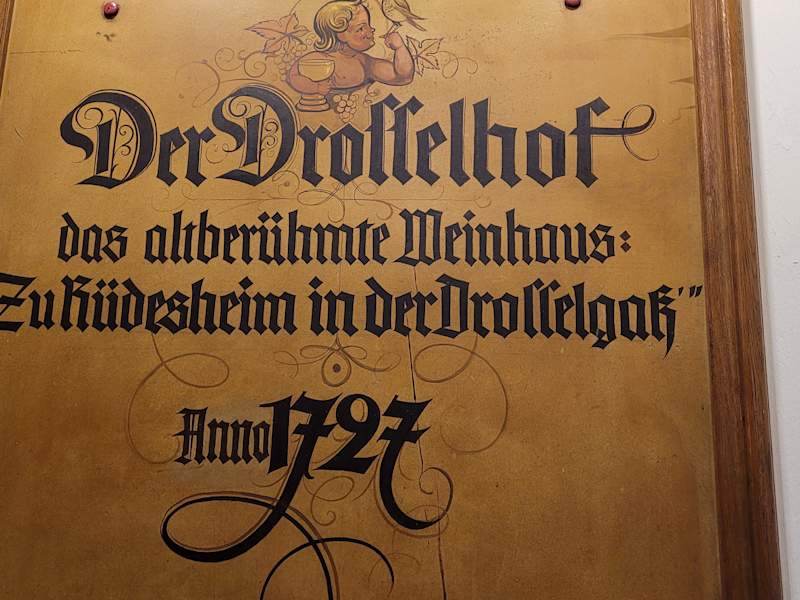 Der Drosselhof
das altberühmte Weinhaus:
Zu Rüdesheim in der Drosselgaß'"
Anno 1727